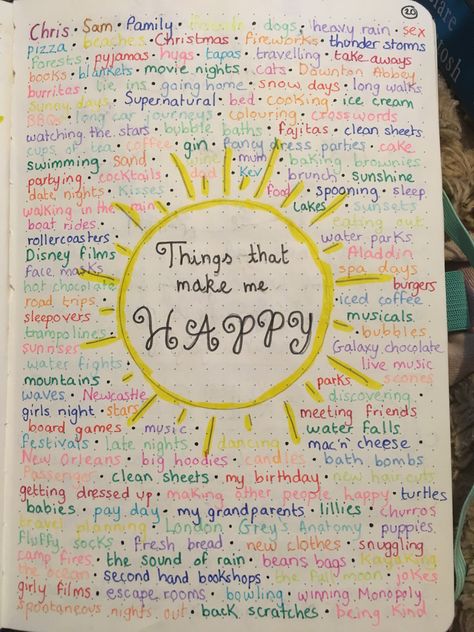 20
Chris · Sam · Family · friends · dogs · heavy rain · sex
pizza · beaches · Christmas · fireworks · thunder storms
Forests · pyjamas · hugs · tapas · travelling · take aways
books · blankets · movie nights · cats · Downton Abbey
burritos · lie ins · going home · snow days · long walks
Sunny days · Supernatural · bed · cooking · ice cream
BBQs · long car journeys · colouring · crosswords
watching the stars · bubble baths · fajitas · clean sheets
cups of tea · coffee · gin · fancy dress parties · cake
swimming · sand · wine · mum · baking brownies
partying · cocktails · dad · Kev · brunch · sunshine
date nights · Kisses · food · spooning · sleep
walking in the rain · Lakes · sunsets
boat rides · eating out
rollercoasters · water parks
Disney films · Aladdin
face masks · spa days
hot chocolate · burgers
road trips · iced coffee
sleepovers · musicals
trampolines · bubbles
sunrises · Galaxy chocolate
water fights · live music
mountains · parks · scones
waves · Newcastle · discovering
girls night · stars · meeting friends
board games · music · water falls
festivals · late nights · dancing · mac'n'cheese
New Orleans · big hoodies · candles · bath bombs
Passenger · clean sheets · my birthday · new hair cuts
getting dressed up · making other people happy · turtles
babies · pay day · my grandparents · lillies · churros
travel planning · London · Grey's Anatomy · puppies
fluffy socks · fresh bread · new clothes · snuggling
camp fires · the sound of rain · beans bags · Kayaking
the ocean · second hand bookshops · the full moon · jokes
girly films · escape rooms · bowling · winning Monopoly
spontaneous nights out · back scratches · being kind
Things that
make me
HAPPY
share